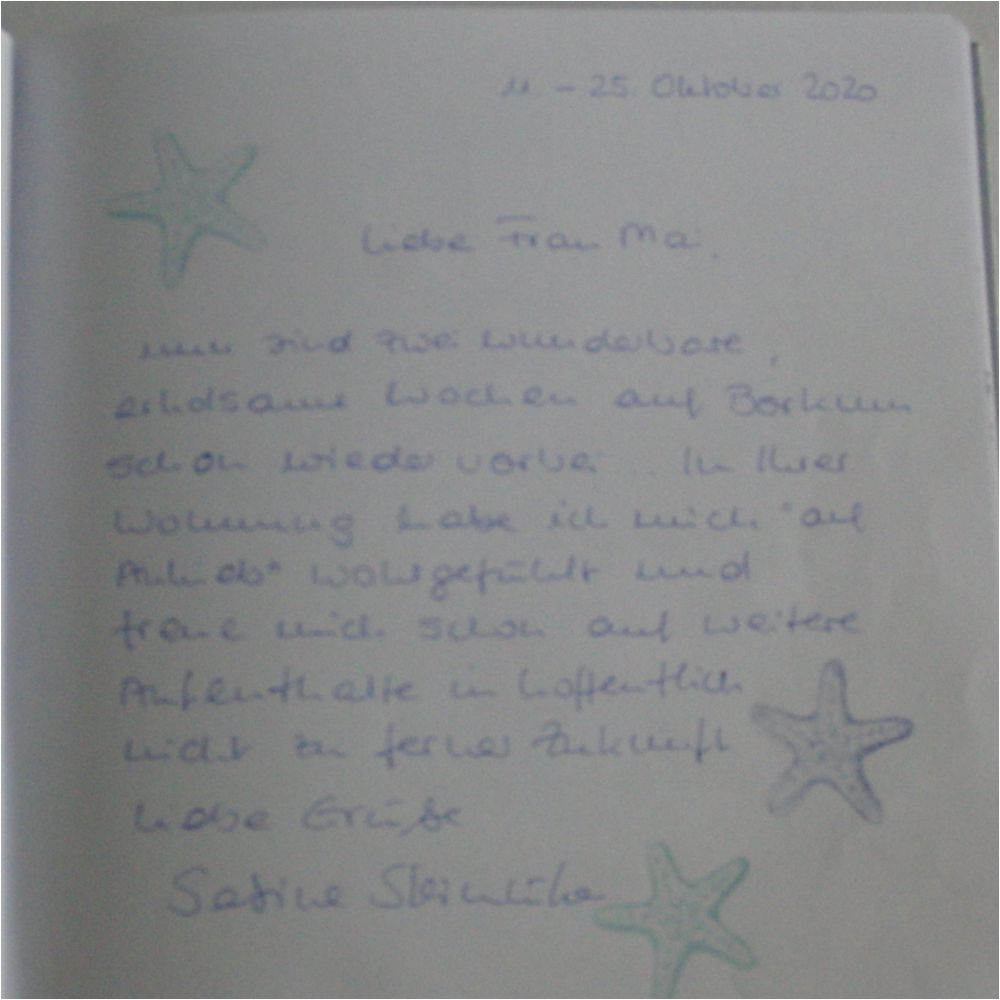 11. - 25. Oktober 2020
Liebe Frau Mai,
nun sind zwei wunderbare,
erholsame Wochen auf Borkum
schon wieder vorbei... In Ihrer
Wohnung habe ich mich "auf
Anhieb" wohlgefühlt und
freue mich schon auf weitere
Aufenthalte in hoffentlich
nicht zu ferner Zukunft
Liebe Grüße
Sabine